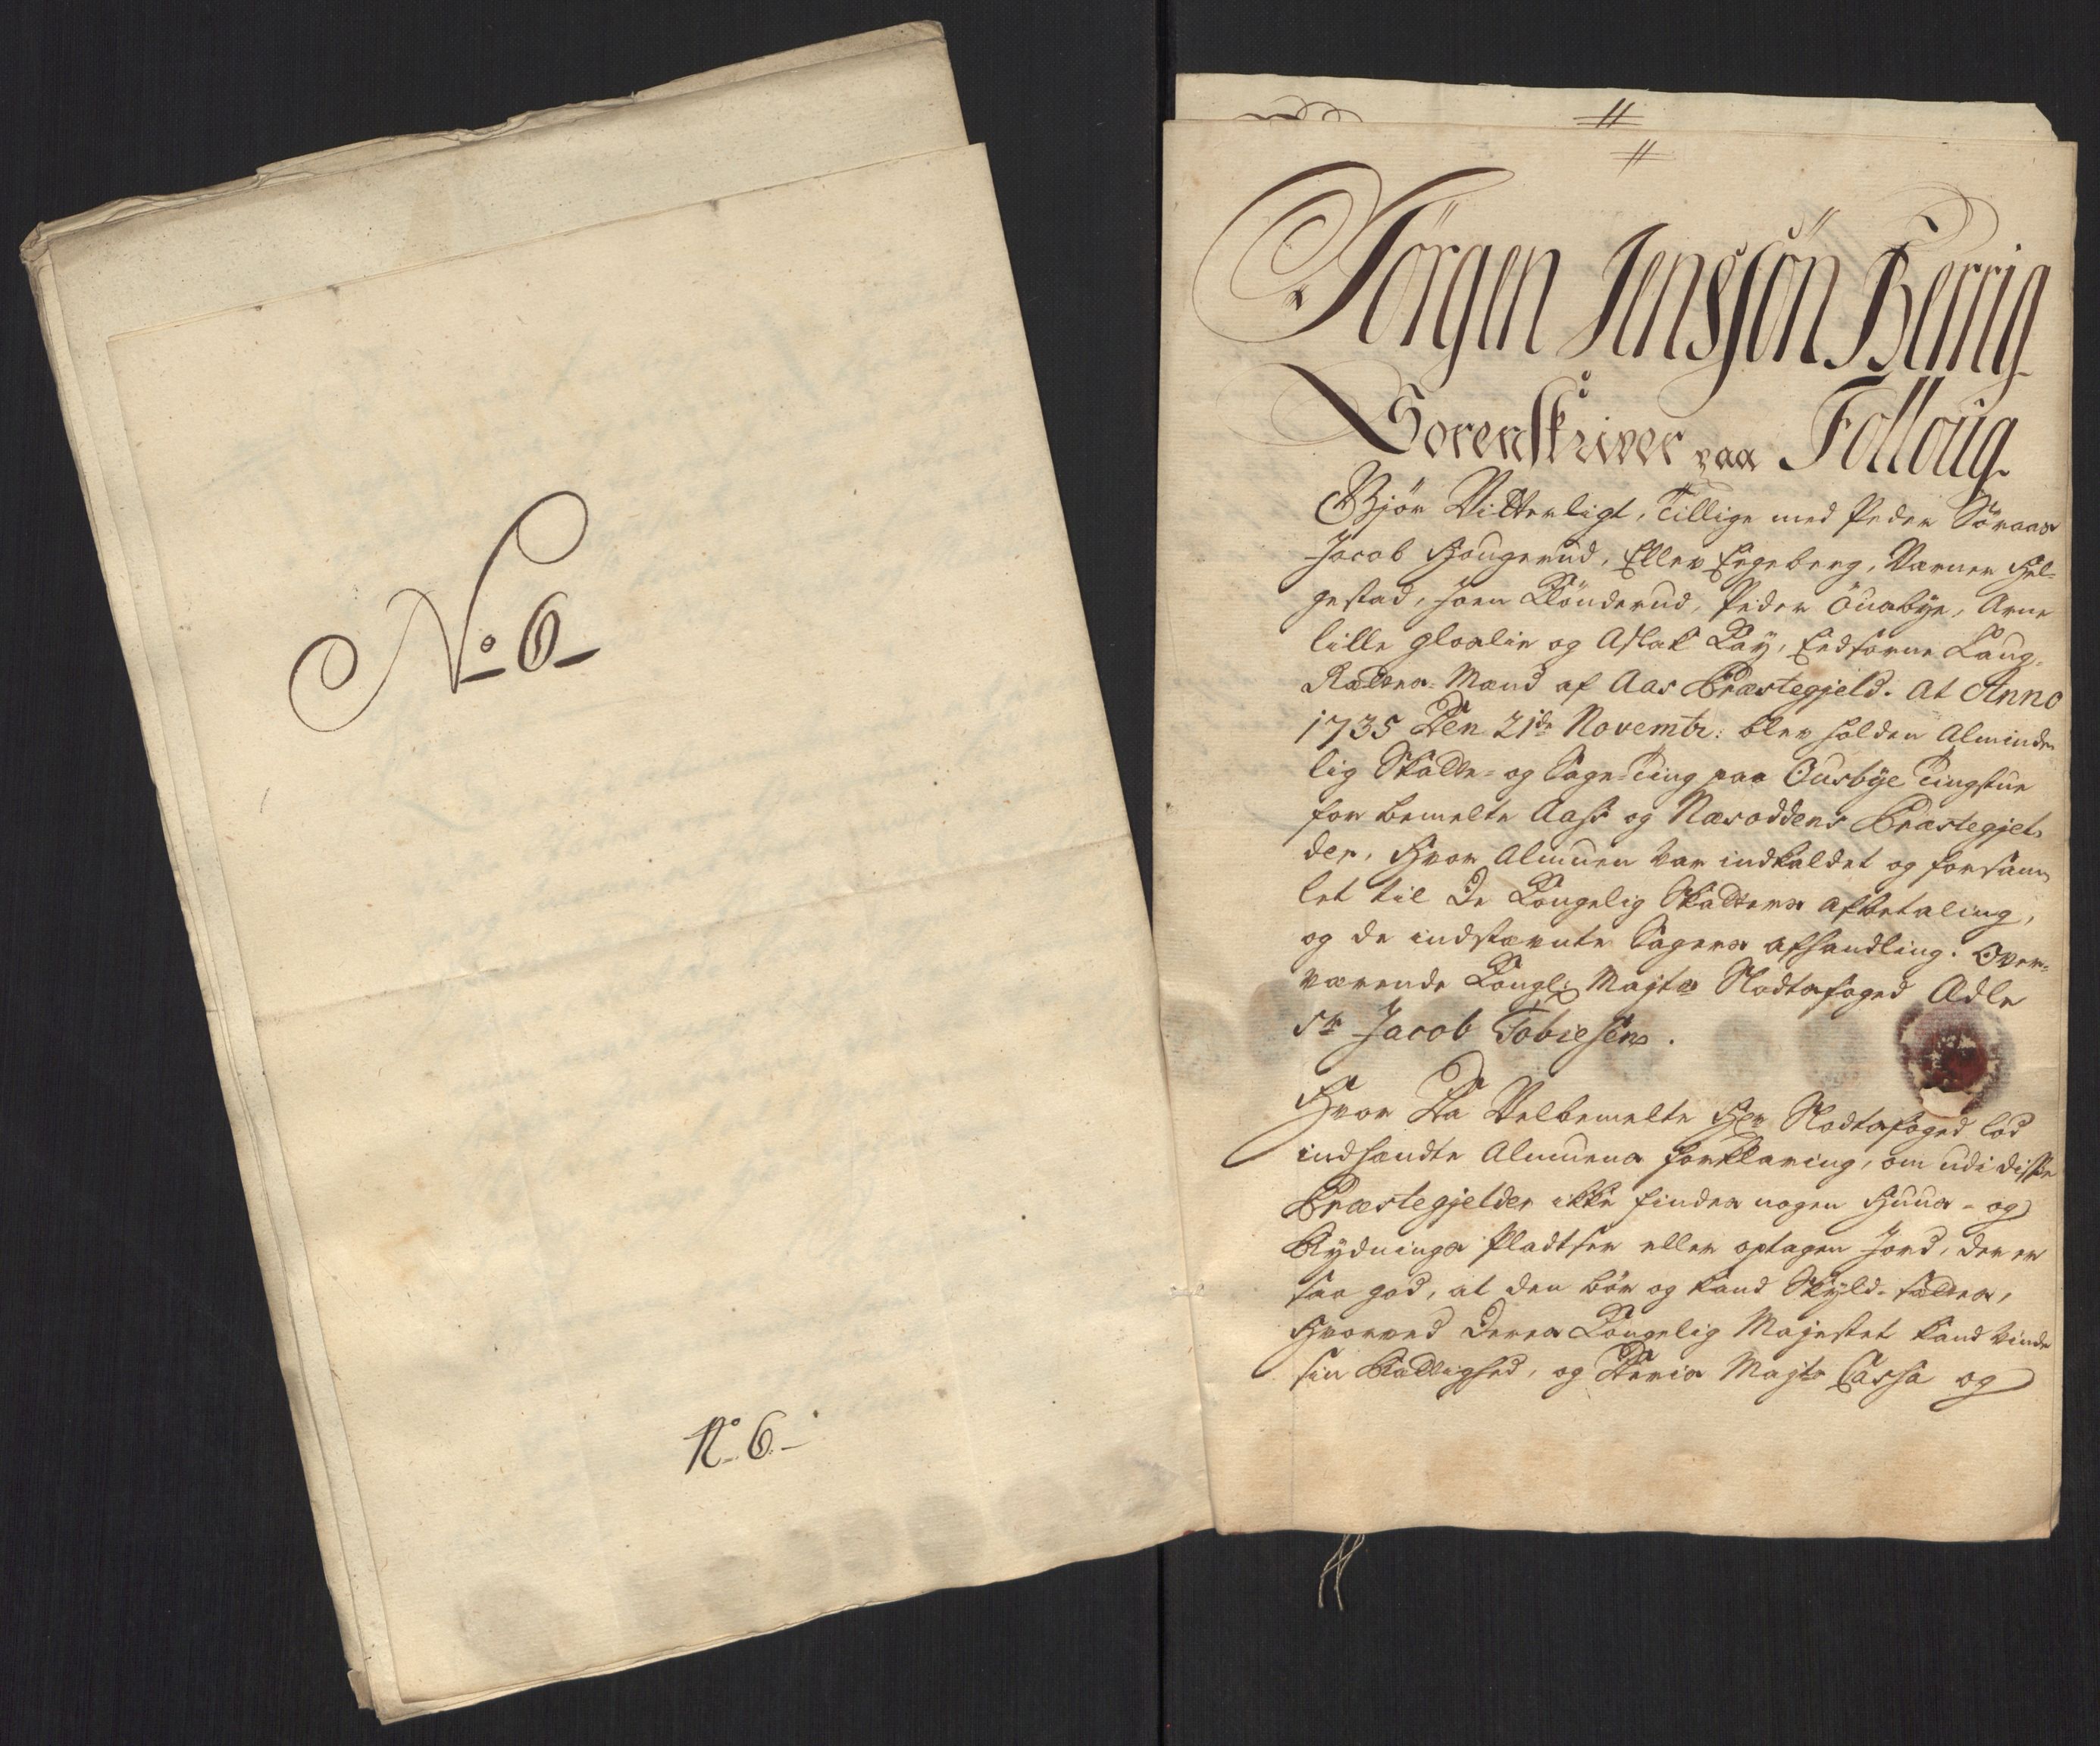 No 6
No 6
Jörgen Jenssön Berrig
Sorenskriver paa Folloug
Gjör Vitterligt, Tillige med Peder Söraas
Jacob Hougerud, Ellev Ergeberg, Varner Hel-
gestad, Joen Klönderud, Peder Öuebye, Arne
lille gloslie og Aslak Kay, Eedsorne Laug-
Rættes-Mænd af Aas Præstegjeld. At Anno
1735 Den 21de Novembr: blev holden Alminde
lig Skatte- og Sage-Ting paa Ousbye Tingstue
for bemelte Aass og Næsoddens Præstegjel-
der, Hvor Almuen var indkaldet og forsam
let til De Kongelig Skatters afbetaling,
og de indstævnte Sagers afhandling. Over-
værende Kongl: Majts Slodtsfoged Ædle
Sr Jacob Tobiesen.
Hvor Da Velbemelte Hr Slodtsfoged lod
indhændte Almuens forklaring, om udi disse
Præstegjelder ikke findes nogen Huus- og
Rydnings Pladtser eller optagen Jord, der er
saa god, at den bör og kand Skyld-sættes,
Hvorved Deres Kongelig Majestet kand vinde
sin Rættighed, og Deris Majts Cassa og